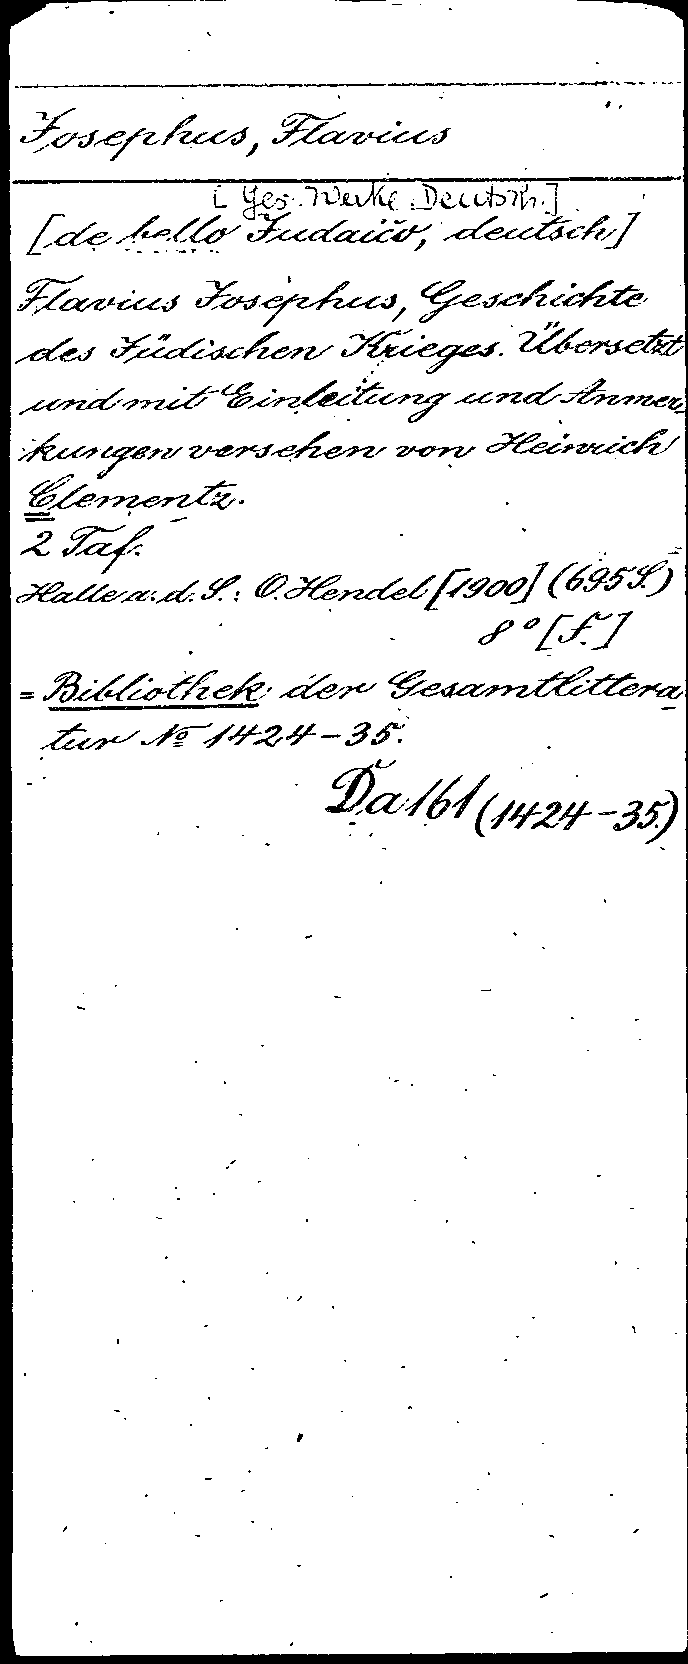 Josephus, Flavius
[Ges. Werke. Deutsch.]
[de bello Judaico, deutsch]
Flavius Josephus, Geschichte
des Jüdischen Krieges. Übersetzt
und mit Einleitung und Anmer-
kungen versehen von Heinrich
Clementz.
2 Taf.
Halle a. d. S.: O. Hendel [1900] (695 S.)
8° [F.]
= Bibliothek der Gesamtlittera-
tur № 1424-35.
Da 161 (1424-35.)